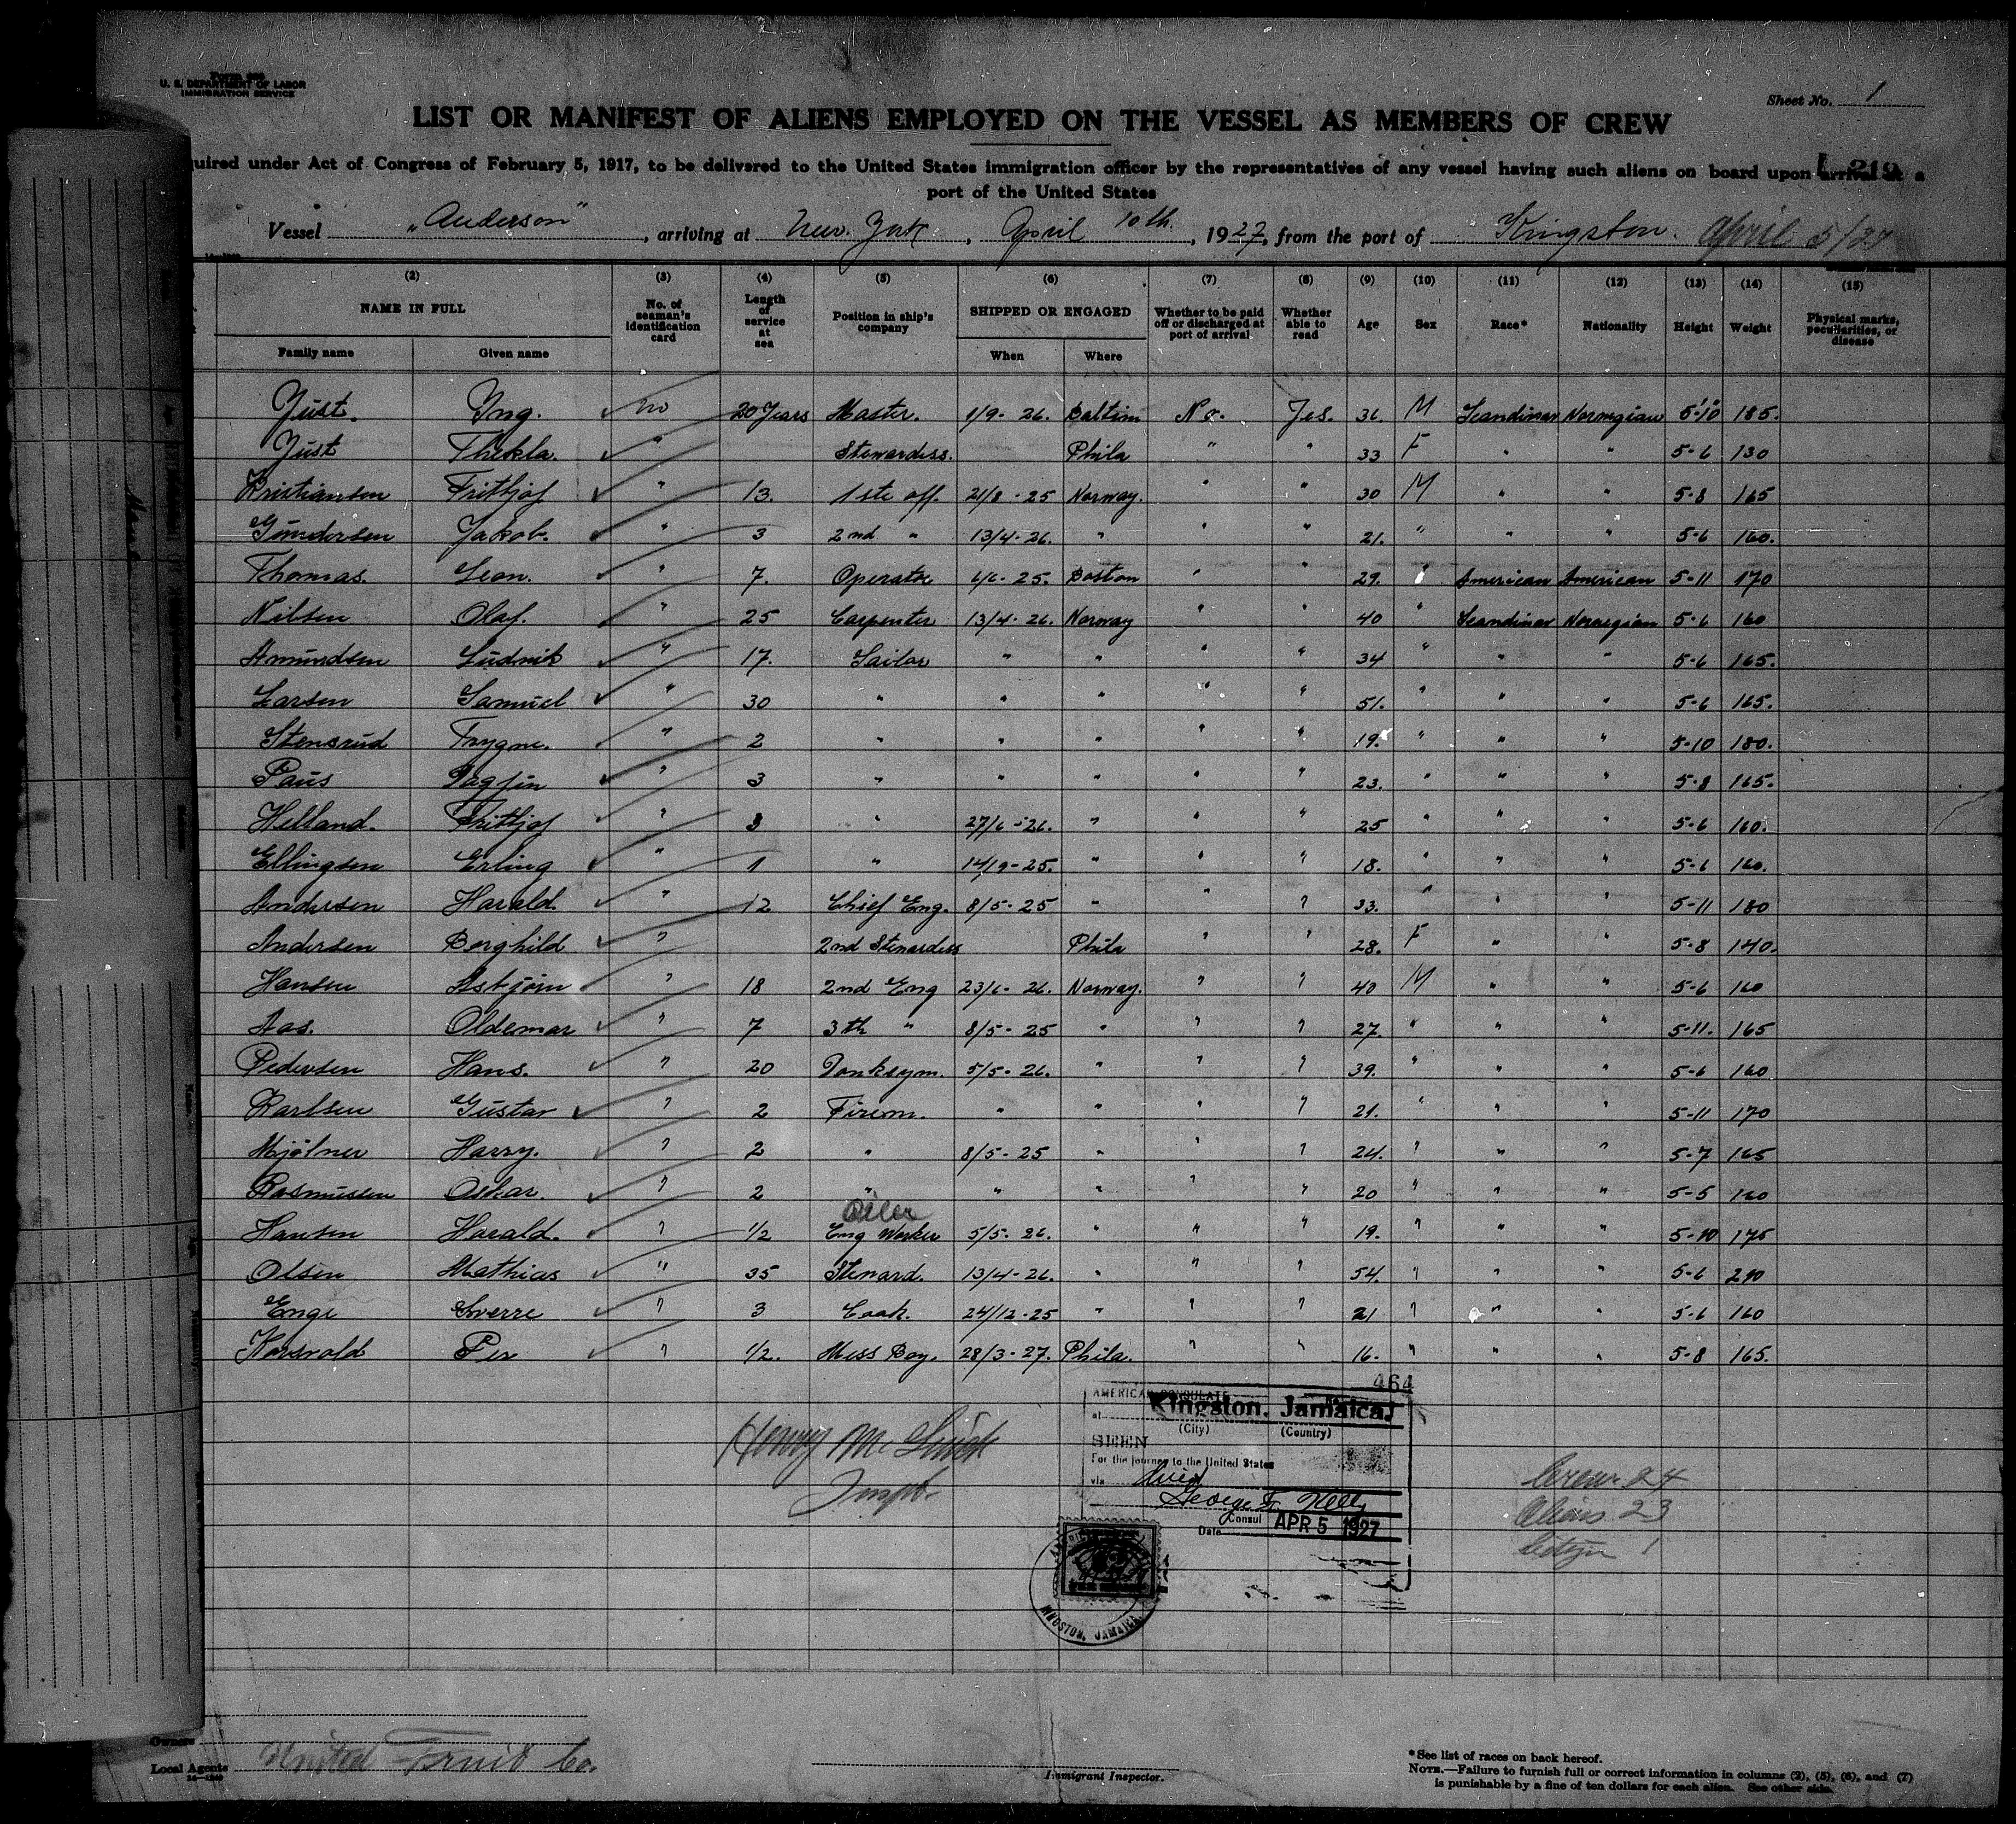 U. S. DEPARTMENT OF LABOR
IMMIGRATION SERVICE
Sheet No. 1
LIST OR MANIFEST OF ALIENS EMPLOYED ON THE VESSEL AS MEMBERS OF CREW
quired under Act of Congress of February 5, 1917, to be delivered to the United States immigration officer by the representatives of any vessel having such aliens on board upon arrival at a
port of the United States
Vessel "Anderson", arriving at New York, April 10th, 1927, from the port of Kingston. April 5/27
(2) (3) (4) (5) (6) (7) (8) (9) (10) (11) (12) (13) (14) (15)
NAME IN FULL No. of seaman's identification card Length of service at sea Position in ship's company SHIPPED OR ENGAGED Whether to be paid off or discharged at port of arrival Whether able to read Age Sex Race* Nationality Height Weight Physical marks, peculiarities, or disease
Family name Given name When Where
Just. Ing. no 20 Years Master. 1/9-26. Baltim No. Yes. 36. M Scandinav Norwegian 5'-10" 185.
Just Thekla. " Stewardess. Phila " " 33 F " " 5-6 130
Kristiansen Frithjof " 13. 1ste off. 21/8-25 Norway. " " 30 M " " 5-8 165
Gundersen Jakob. " 3 2nd " 13/4-26. " " " 21. " " " 5-6 160.
Thomas. Leon. " 7. Operator 6/6-25. Boston " " 29. " American American 5-11 170
Nilsen Olaf. " 25 Carpenter 13/4-26. Norway " " 40 " Scandinav Norwegian 5-6 160
Amundsen Ludvik " 17. Sailor " " " " 34 " " " 5-6 165.
Larsen Samuel " 30 " " " " " 51. " " " 5-6 165.
Stensrud Trygve. " 2 " " " " " 19. " " " 5-10 180.
Paus Dagfin " 3 " " " " " 23. " " " 5-8 165.
Helland. Frithjof " 3 " 27/6-26. " " " 25 " " " 5-6 160.
Ellingsen Erling " 1 " 14/9-25. " " " 18. " " " 5-6 160.
Andersen Harald. " 12 Chief Eng. 8/5-25 " " " 33. " " " 5-11 180
Andersen Borghild " 2nd Stewardess Phila " " 28. F " " 5-8 140.
Hansen Asbjörn " 18 2nd Eng 23/6-26. Norway. " " 40 M " " 5-6 160
Aas. Oldemar " 7 3th " 8/5-25 " " " 27. " " " 5-11. 165
Pedersen Hans. " 20 Donkeym. 5/5-26. " " " 39. " " " 5-6 160
Karlsen Gustav " 2 Firem. " " " " 21. " " " 5-11 170
Mjölner Harry. " 2 " 8/5-25 " " " 24. " " " 5-7 165
Rasmussen Oskar " 2 " " " " " 20 " " " 5-5 160
Oiler
Hansen Harald. " 1/2 Eng Worker 5/5-26. " " " 19. " " " 5-10 175
Olsen Mathias " 35 Steward. 13/4-26. " " " 54. " " " 5-6 210
Enge Sverre " 3 Cook. 24/12-25 " " " 21 " " " 5-6 160
Per " 1/2. Mess Boy. 28/3-27. Phila. " " 16. " " " 5-8 165.
464
AMERICAN CONSULATE
at Kingston, Jamaica.
(City) (Country)
SEEN
For the journey to the United States
via
George
Consul
Date APR 5 1927
KINGSTON, JAMAICA.
Henry
Insptr.
Crew 24
Aliens 23
Citizen 1
Owners
Local Agents United Fruit Co.
Immigrant Inspector.
*See list of races on back hereof.
NOTE.—Failure to furnish full or correct information in columns (2), (5), (6), and (7)
is punishable by a fine of ten dollars for each alien. See other side.